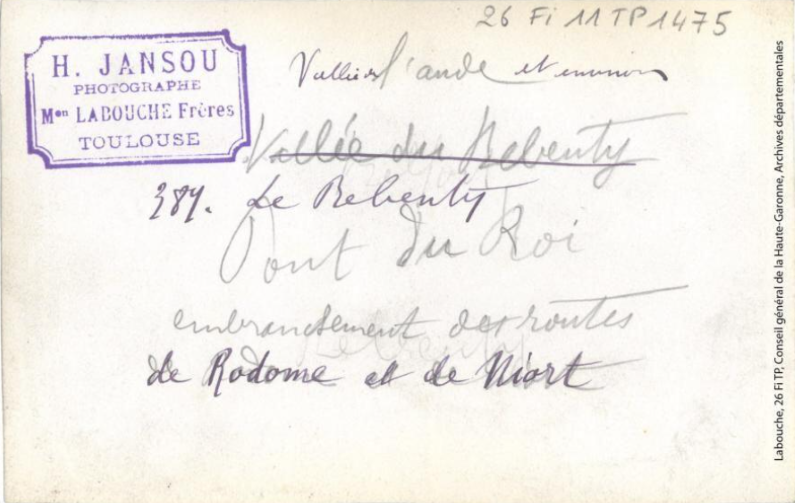 26 Fi 11 TP 1475
H. JANSOU
PHOTOGRAPHE
Mon LABOUCHE Frères
TOULOUSE
l'aude et environs
Vallée du Rebenty
387. Le Rebenty
Pont du Roi
embranchement des routes
de Rodome et de Niort
Labouche, 26 Fi TP, Conseil général de la Haute-Garonne, Archives départementales